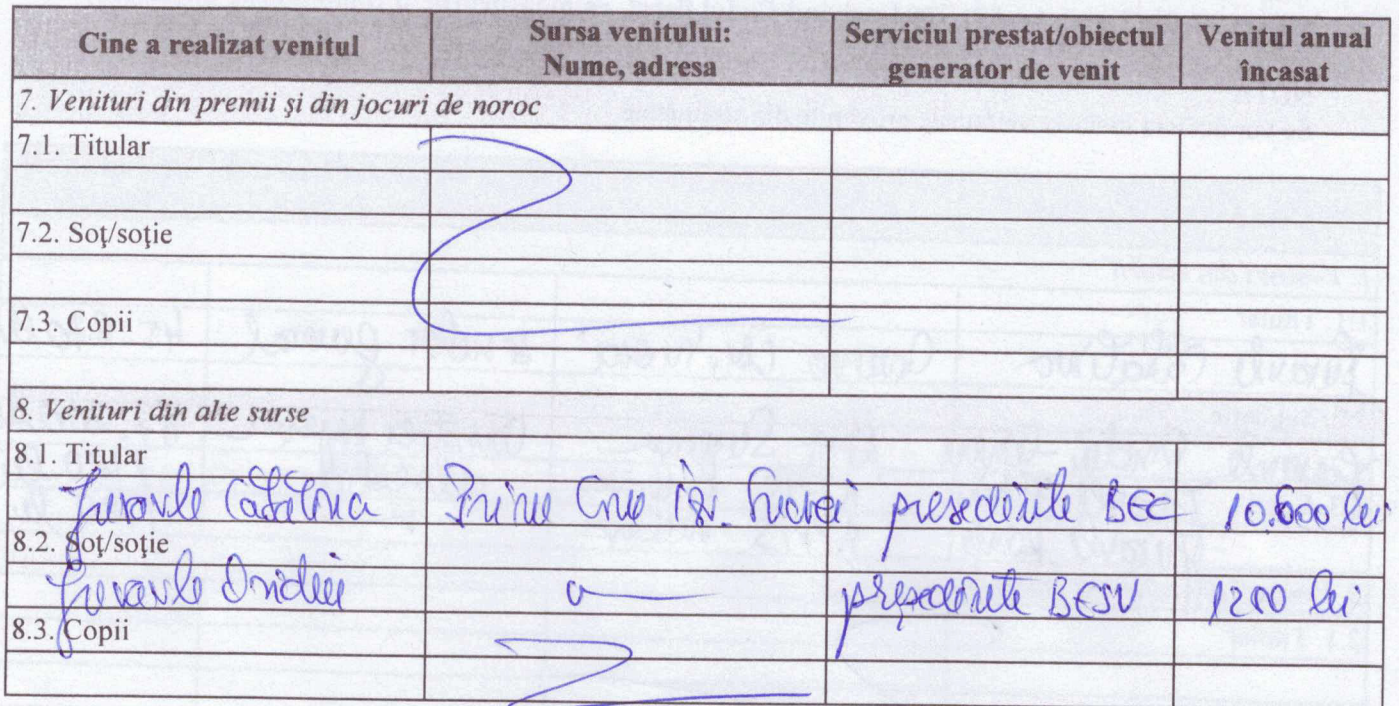 Cine a realizat venitul Sursa venitului: Nume, adresa Serviciul prestat/obiectul generator de venit Venitul anual încasat
7. Venituri din premii şi din jocuri de noroc
7.1. Titular
7.2. Soţ/soţie
7.3. Copii
8. Venituri din alte surse
8.1. Titular
Cătălina președinte BEC 10.600 lei
8.2. Soţ/soţie
Ovidiu președinte BESV 1200 lei
8.3. Copii